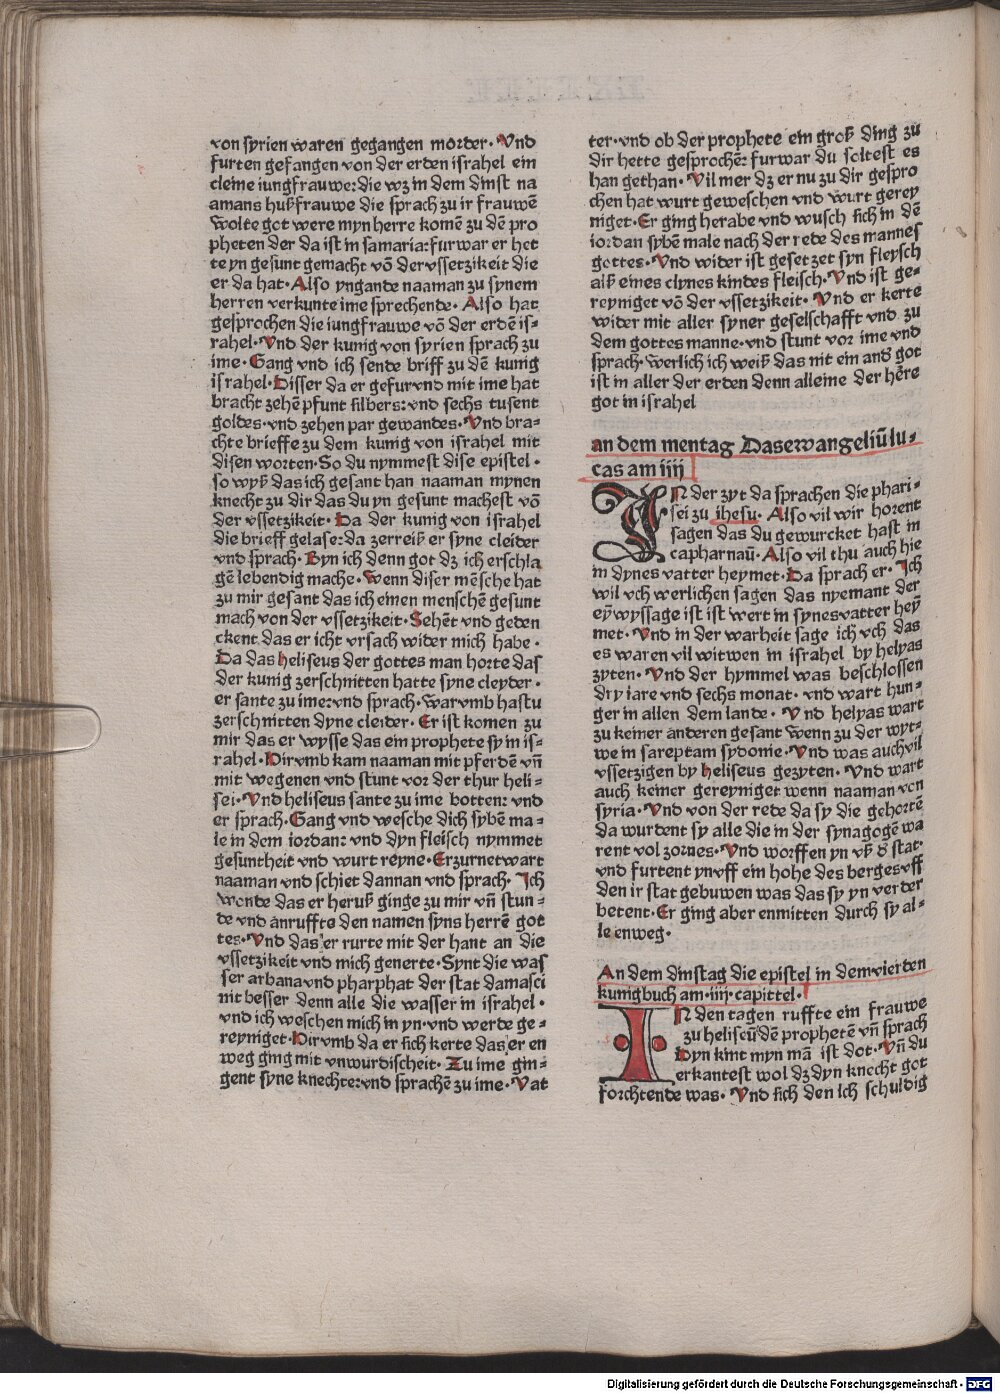 von syrien waren gegangen morder· Vnd
furten gefangen von der erden israhel ein
cleine iungfrauwe: die wz in dem dinst na
amans hußfrauwe die sprach zu ir frauwē
wolte got were myn herre komē zu dē pro
pheten der da ist in samaria: fur war er het
te yn gesunt gemacht vō der vssetzikeit die
er da hat· Also yngande naaman zu synem
herren verkunte ime sprechende· Also hat
gesprochen die iungfrauwe vō der erdē is-
rahel· Vnd der kunig von syrien sprach zu
ime· Gang vnd ich sende briff zu dē kunig
israhel· Disser da er gefur vnd mit ime hat
bracht zehē pfunt silbers: vnd sechs tusent
goldes· vnd zehen par gewandes· Vnd bra-
chte brieffe zu dem kunig von israhel mit
disen worten· So du nymmest dise epistel·
so wyß das ich gesant han naaman mynen
knecht zu dir das du yn gesunt machest vō
der vssetzikeit· Da der kunig von israhel
die brieff gelase: da zerreiß er syne cleider
vnd sprach· Byn ich denn got dz ich erschla
gē lebendig mache· Wenn diser mēsche hat
zu mir gesant das ich einen menschē gesunt
mach von der vssetzikeit· Sehēt vnd geden
ckent das er icht vrsach wider mich habe·
Da das heliseus der gottes man horte das
der kunig zerschnitten hatte syne cleyder·
er sante zu ime: vnd sprach· Warvmb hastu
zerschnitten dyne cleider· Er ist komen zu
mir das er wysse das ein prophete sy in is-
rahel· Dirvmb kam naaman mit pferdē vn̄
mit wegenen vnd stunt vor der thur heli-
sei· Vnd heliseus sante zu ime botten: vnd
er sprach· Gang vnd wesche dich sybē ma-
le in dem iordan: vnd dyn fleisch nymmet
gesuntheit vnd wurt reyne· Erzurnet wart
naaman vnd schiet dannan vnd sprach· Ich
wonde das er heruß ginge zu mir vn̄ stun-
de vnd anruffte den namen syns herrē got
tes· Vnd das er rurte mit der hant an die
vssetzikeit vnd mich generte· Synt die was
ser arbana vnd pharphat der stat damasci
nit besser denn alle die wasser in israhel·
vnd ich weschen mich in yn· vnd werde ge-
reyniget· Dirvmb da er sich kerte das er en
weg ging mit vnwurdischeit· Zu ime gin-
gent syne knechte: vnd sprachē zu ime· Vat
ter· vnd ob der prophete ein groß ding zu
dir hette gesprochē: furwar du soltest es
han gethan· Vil mer dz er nu zu dir gespro
chen hat wurt geweschen vnd wurt gerey
niget· Er ging herabe vnd wusch sich in dē
iordan sybē male nach der rede des mannes
gottes· Vnd wider ist gesetzet syn fleysch
alß eines clynes kindes fleisch· Vnd ist ge-
reyniget vō der vssetzikeit· Vnd er kerte
wider mit aller syner geselschafft vnd zu
dem gottes manne· vnd stunt vor ime vnd
sprach· werlich ich weiß das nit ein and got
ist in aller der erden denn alleine der hēre
got in israhel
an dem mentag Das ewangeliū lu-
cas am iiij
IN der zyt da sprachen die phari-
sei zu ihesu· Also vil wir horent
sagen das du gewurcket hast in
capharnaū· Also vil thu auch hie
in dynes vatter heymet· Da sprach er· Ich
wil vch werlichen sagen das nyemant der
ey̅wyssage ist ist wert in synes vatter hey̅
met· Vnd in der warheit sage ich vch das
es waren vil witwen in israhel by helyas
zyten· Vnd der hymmel was beschlossen
dry iare vnd sechs monat· vnd wart hun-
ger in allen dem lande· Vnd helyas wart
zu keiner anderen gesant wenn zu der wyt-
we in sareptam sydonie· Vnd was auch vil
vssetzigen by heliseus gezyten· Vnd wart
auch keiner gereyniget wenn naaman von
syria· Vnd von der rede da sy die gehortē
da wurdent sy alle die in der synagogē wa
rent vol zornes· Vnd worffen yn vß d̕ stat·
vnd furtent yn vff ein hohe des berges vff
den ir stat gebuwen was das sy yn verder
betent· Er ging aber enmitten durch sy al-
le enweg·
An dem dinstag die epistel in dem vierden
kunigbuch am· iiij· capittel·
IN den tagen ruffte ein frauwe
zu heliseū dē prophetē vn̄ sprach
Dyn kint myn mā ist dot· Vn̄ du
erkantest wol dz dyn knecht got
forchtende was· Vnd sich den ich schuldig
Digitalisierung gefördert durch die Deutsche Forschungsgemeinschaft - DFG